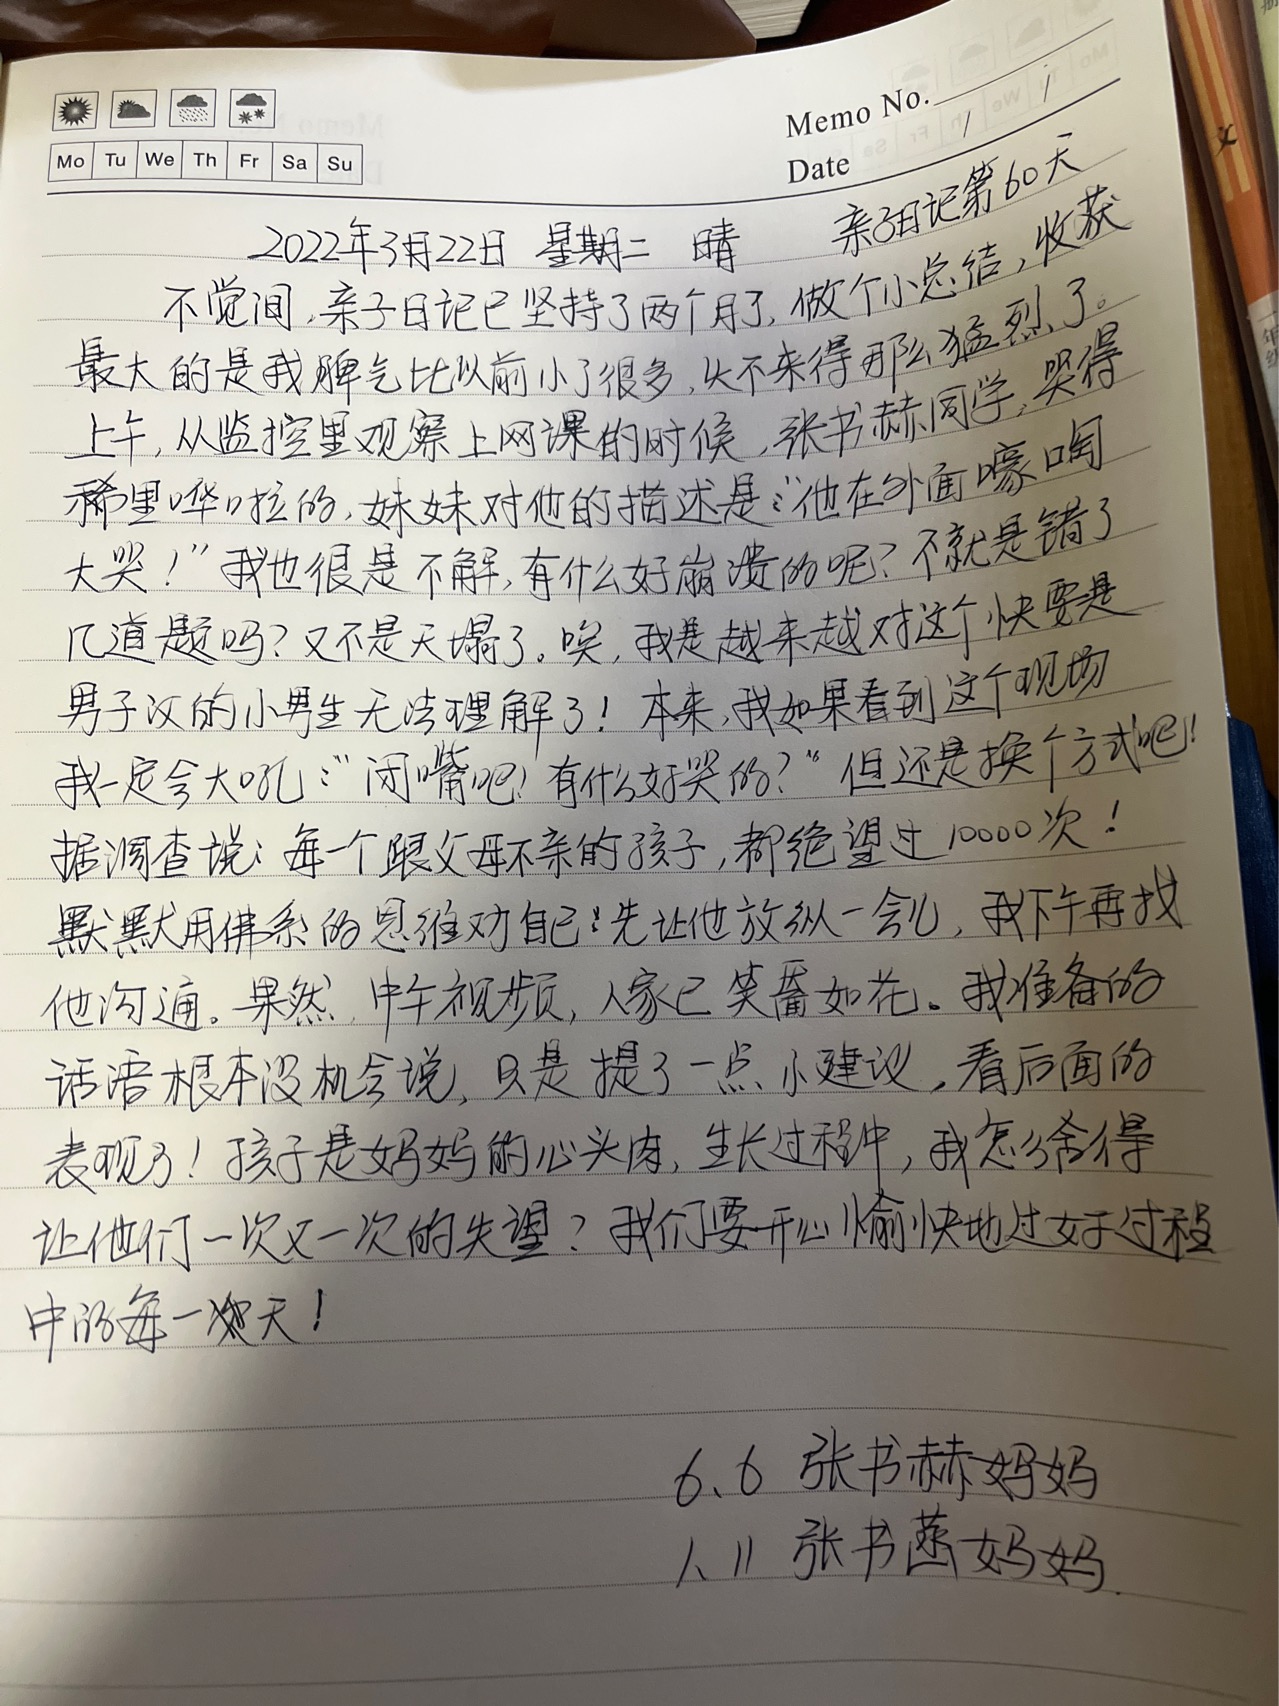 Memo No.
Mo Tu We Th Fr Sa Su
Date / /
2022年3月22日 星期二 晴 亲子日记第60天
不觉间,亲子日记已坚持了两个月了,做个小总结,收获
最大的是我脾气比以前小了很多,火不来得那么猛烈了。
上午,从监控里观察上网课的时候,张书赫同学,哭得
稀里哗啦的,妹妹对他的描述是:“他在外面嚎啕
大哭!”我也很是不解,有什么好崩溃的呢?不就是错了
几道题吗?又不是天塌了。唉,我是越来越对这个快要是
男子汉的小男生无法理解了!本来,我如果看到这个现场
我一定会大吼:“闭嘴吧!有什么好哭的?”但还是换个方式吧!
据调查说:每一个跟父母不亲的孩子,都绝望过10000次!
默默用佛系的思维劝自己:先让他放纵一会儿,我下午再找
他沟通。果然,中午视频,人家已笑靥如花。我准备的
话语根本没机会说,只是提了一点小建议,看后面的
表现了!孩子是妈妈的心头肉,生长过程中,我怎么舍得
让他们一次又一次的失望?我们要开心愉快地过好过程
中的每一天!
6.6 张书赫妈妈
1.11 张书菡妈妈.